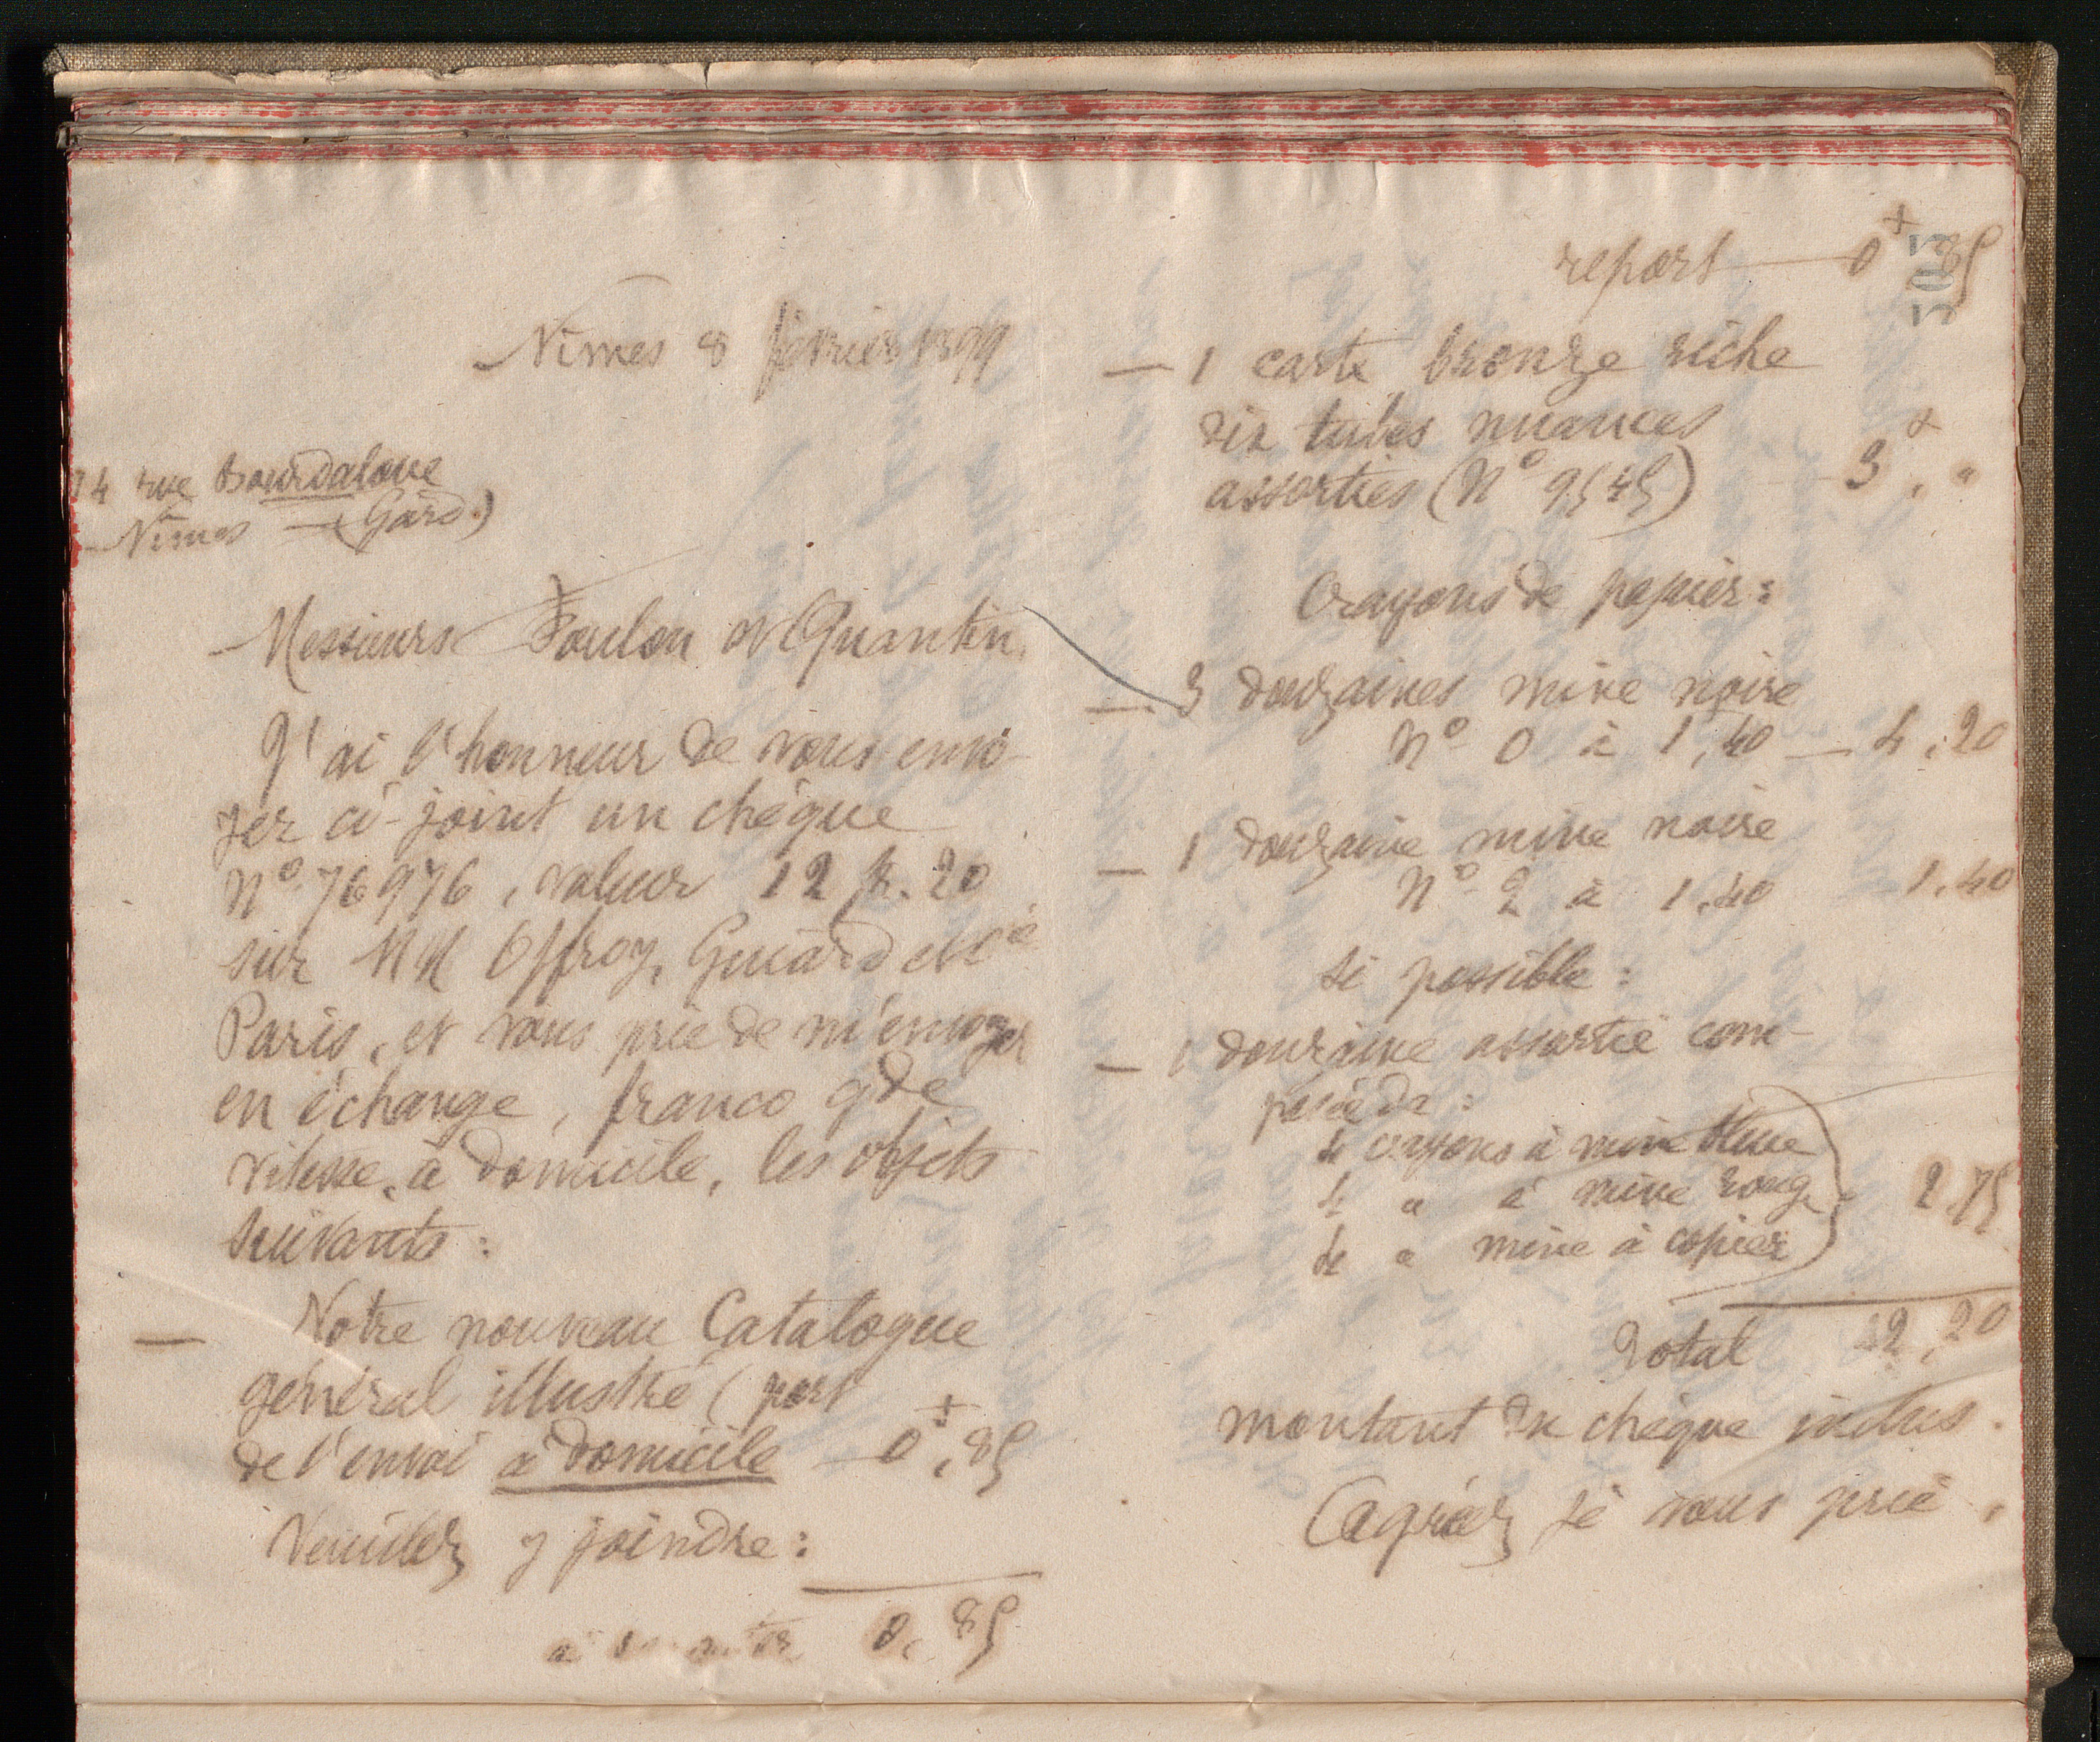 Nîmes 8 février 1899
14 rue Bourdaloue
Nîmes — (Gard.)
Messieurs Foulon et Quantin.
J'ai l'honneur de vous envo-
yer ci-joint un chèque
N° 76976, valeur 12 fr. 20
sur MM Offroy, Guiard et Cie
Paris, et vous prie de m'envoyer
en échange, franco gde
vitesse, à domicile, les objets
suivants :
— Notre nouveau Catalogue
général illustré (port
de l'envoi à domicile — 0,85
Veuillez y joindre :
à 0,85
report — 0 85
— 1 carte bronze riche
dix tubes nuances
assorties (N° 9545) 3, "
Crayons de papier :
— 3 douzaines mine noire
N° 0 à 1,40 — 4,20
— 1 douzaine mine noire
N° 2 à 1,40 1,40
Si possible :
— 1 douzaine assortie com-
posée de :
4 crayons à mine bleue
4 " à mine rouge
4 " mine à copier
2,75
Total 12,20
montant du chèque inclus.
Agréez je vous prie,
303